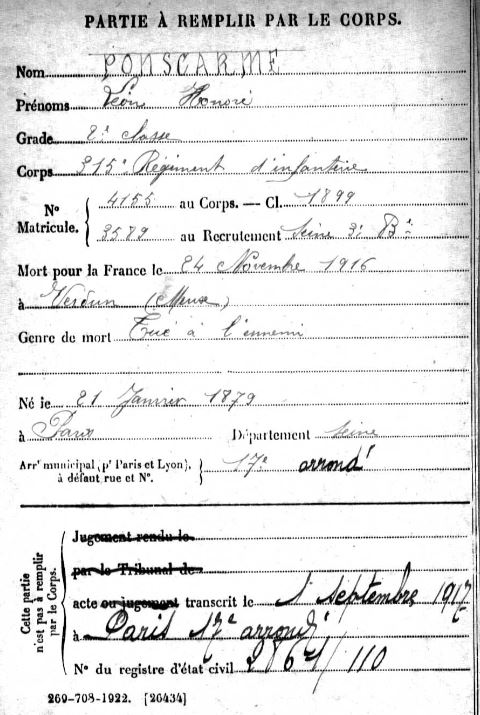 PARTIE À REMPLIR PAR LE CORPS.
Nom PONSCARME
Prénoms Léon Honoré
Grade 2e classe
Corps 315e Régiment d'infanterie
N° Matricule. { 4155 au Corps. — Cl. 1899
3589 au Recrutement Seine 3e Bau
Mort pour la France le 24 Novembre 1916
à Verdun (Meuse)
Genre de mort Tué à l'ennemi
Né le 21 Janvier 1879
à Paris Département Seine
Arrt municipal (pr Paris et Lyon), à défaut rue et N°. } 17e arrondt
Cette partie n'est pas à remplir par le Corps.
Jugement rendu le
par le Tribunal de
acte ou jugement transcrit le 1 septembre 1917
à Paris 17e arrondt
N° du registre d'état civil 2861/110
269-708-1922. [26434]